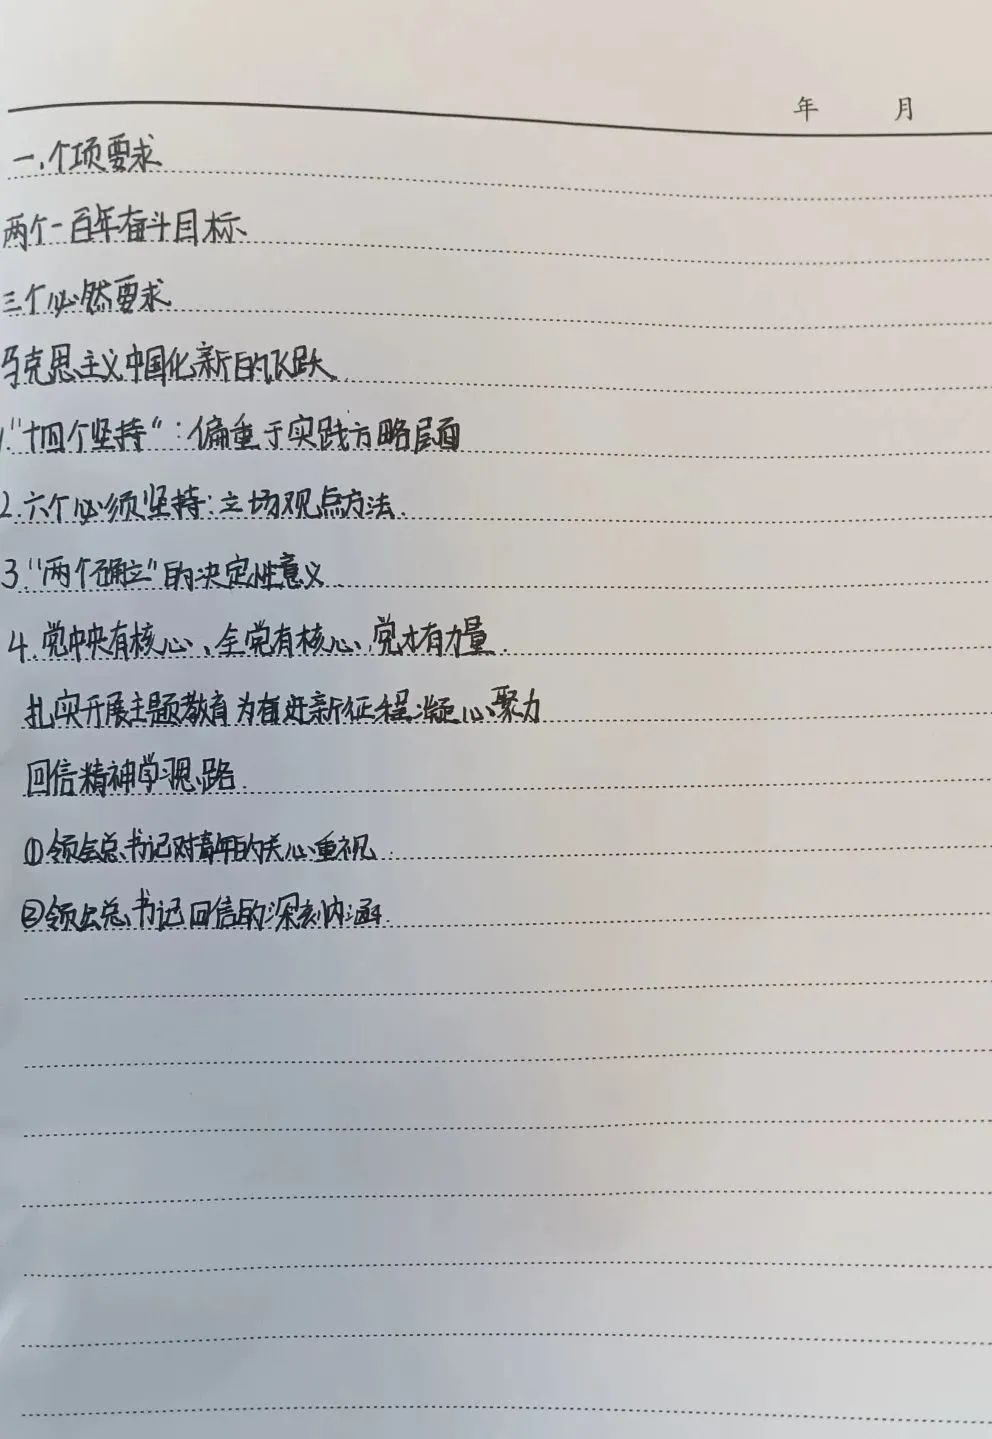 年 月
一、个项要求
两个一百年奋斗目标、
三个必然要求
马克思主义中国化新的飞跃.
1."十四个坚持"：偏重于实践方略层面
2.六个必须坚持:立场观点方法.
3."两个确立"的决定性意义.
4.党中央有核心、全党有核心,党才有力量.
扎实开展主题教育为奋进新征程凝心聚力
回信精神学习思路.
①领会总书记对青年的关心重视.
②领会总书记回信的深刻内涵.